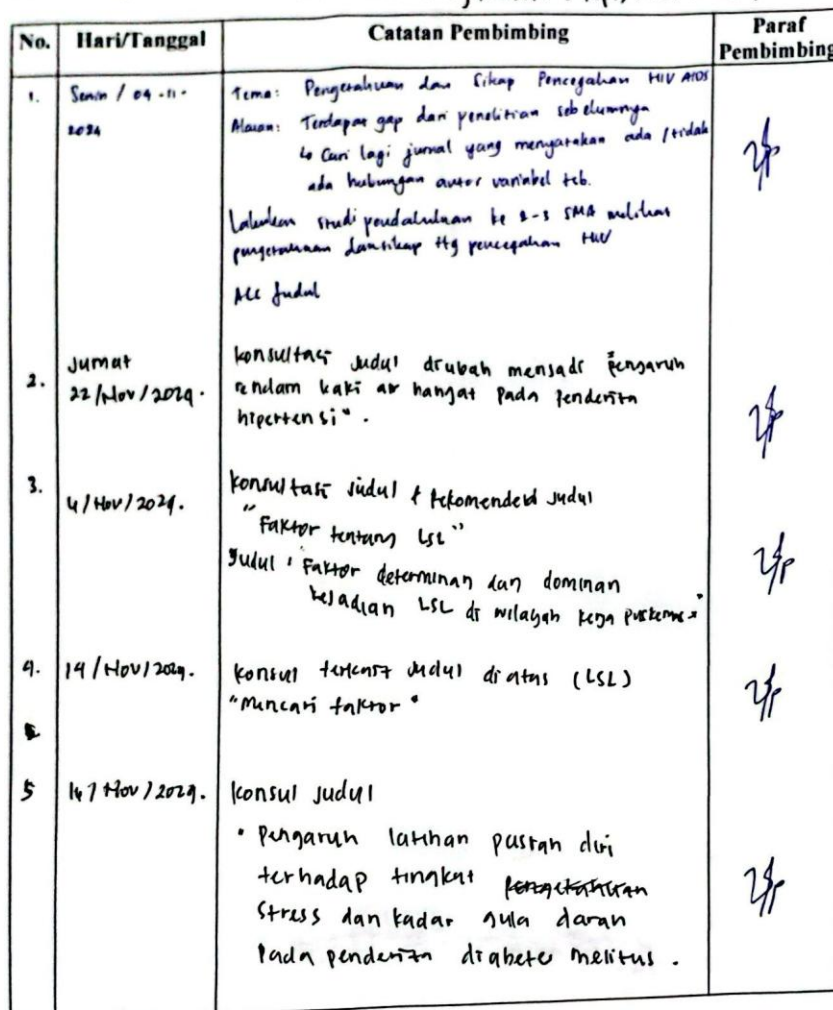 No. Hari/Tanggal Catatan Pembimbing Paraf Pembimbing
1. Senin / 04-11-2024
Tema: Pengetahuan dan Sikap Pencegahan HIV AIDS
Alasan: Terdapat gap dari penelitian sebelumnya
↳ Cari lagi jurnal yang menyatakan ada / tidak
ada hubungan antar variabel tsb.
Lakukan studi pendahuluan ke 2-3 SMA melihat
pengetahuan dan sikap ttg pencegahan HIV
ACC Judul
2. Jumat 22/Nov/2024.
konsultasi judul diubah menjadi "Pengaruh
rendam kaki air hangat pada penderita
hipertensi".
3. 4/Nov/2024.
konsultasi judul & rekomendasi judul
"Faktor tentang LSL"
Judul : Faktor determinan dan dominan
kejadian LSL di wilayah kerja
4. 14/Nov/2024.
konsul judul di atas (LSL)
"Mencari faktor"
5 /Nov/2024.
konsul judul
" Pengaruh latihan diri
terhadap tingkat pengetahuan
stress dan kadar gula darah
pada penderita diabetes melitus.